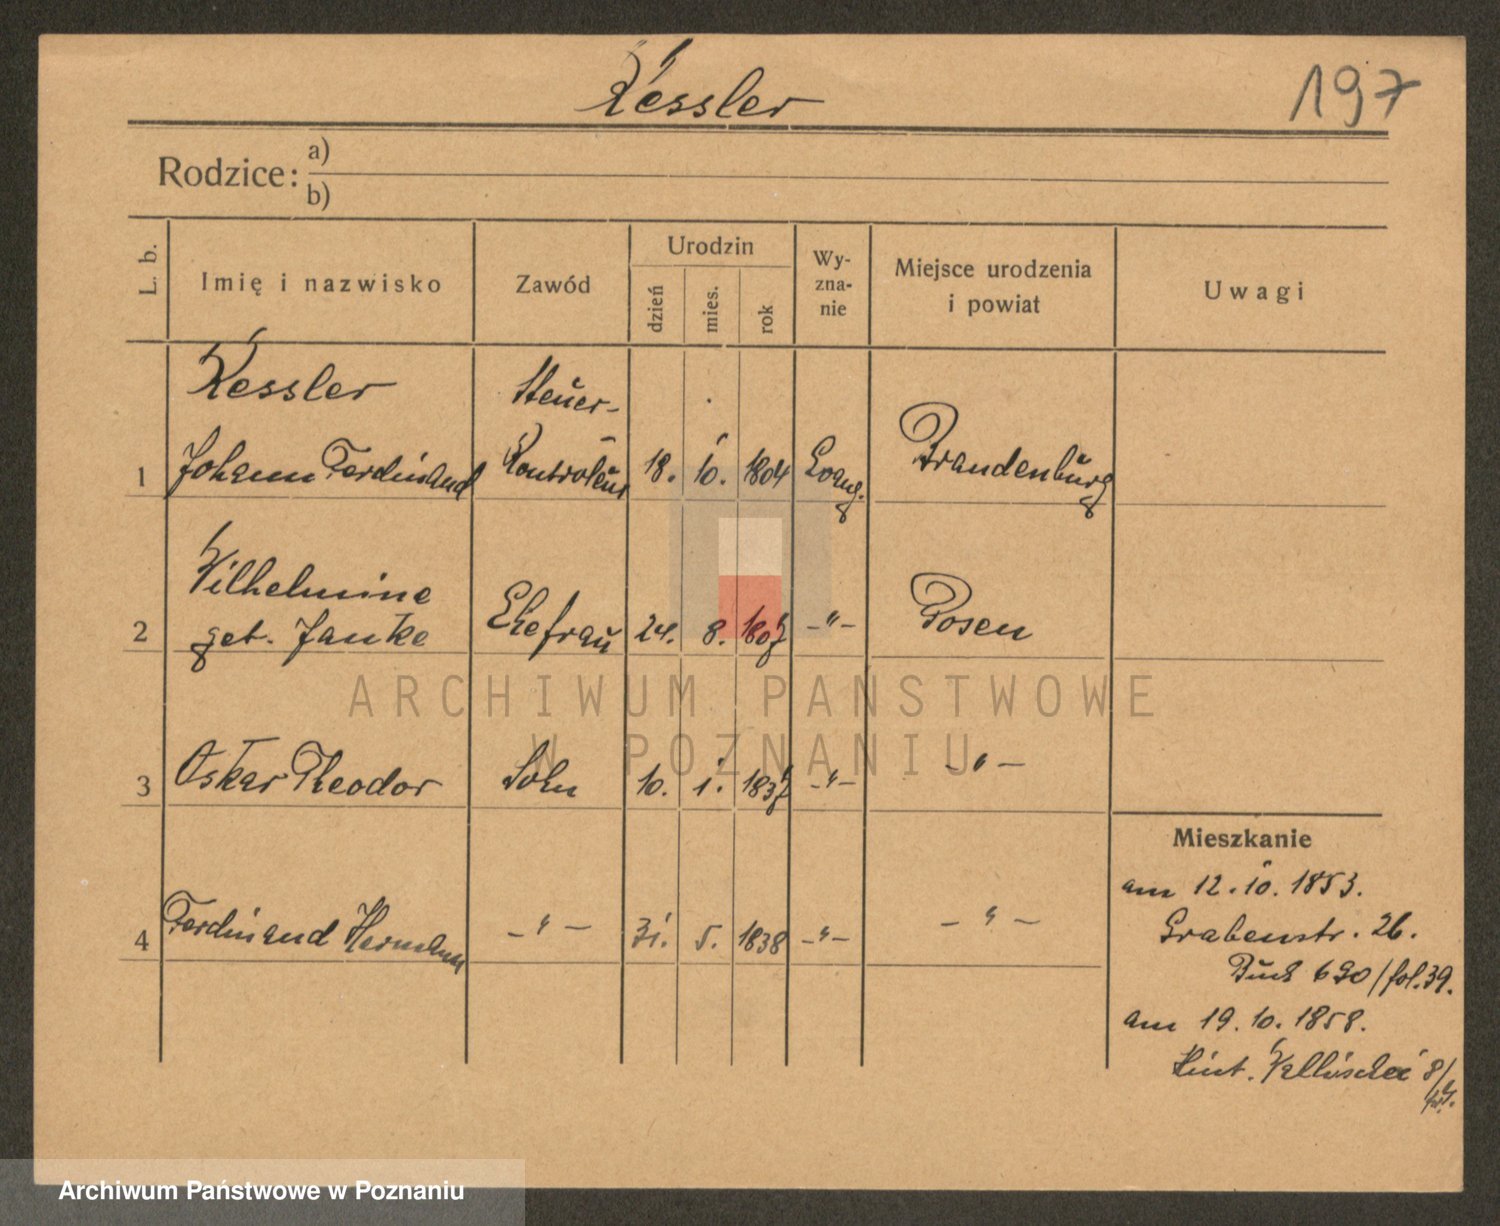 Kessler
197
Rodzice: a)
b)
L. b.
Imię i nazwisko
Zawód
Urodzin
dzień
mies.
rok
Wy-
zna-
nie
Miejsce urodzenia
i powiat
Uwagi
Kessler
Steuer-
1 Johann Ferdinand Kontroleur 18. 10. 1804 Evang. Brandenburg
Wilhelmine
2 geb. Janke Ehefrau 24. 8. 1807 -"- Posen
3 Oskar Theodor Sohn 10. 1. 1837 -"- -"-
4 Ferdinand Hermann -"- 31. 5. 1838 -"- -"-
Mieszkanie
am 12.10.1853.
Grabenstr. 26.
690/fol.39.
am 19.10.1858.
Hint. Wallischei 8/
ARCHIWUM PAŃSTWOWE
W POZNANIU
Archiwum Państwowe w Poznaniu